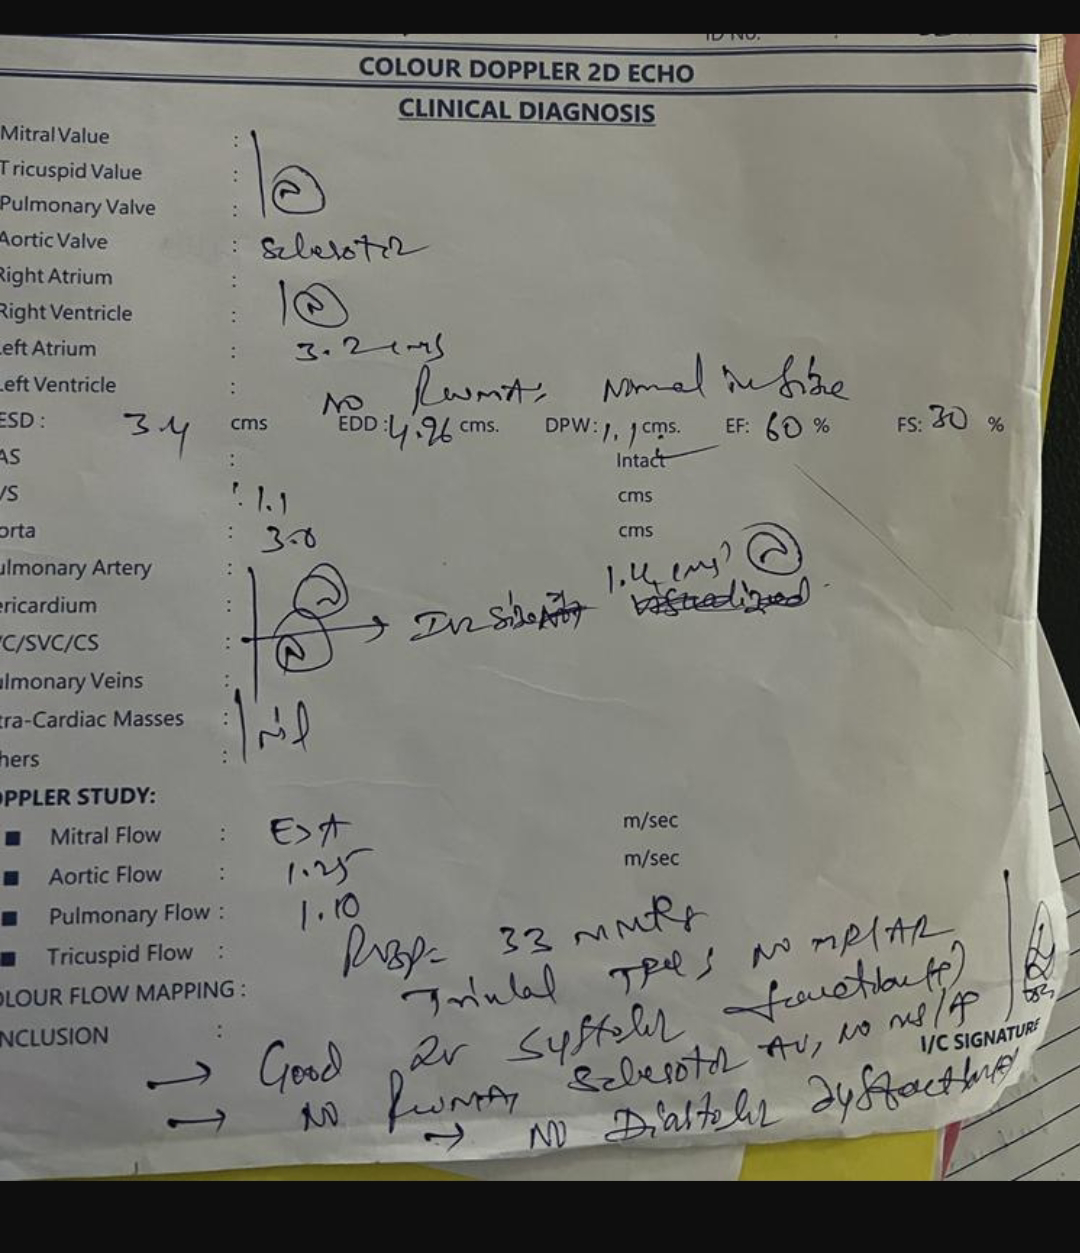 ID NO. :
COLOUR DOPPLER 2D ECHO
CLINICAL DIAGNOSIS
Mitral Value :
Tricuspid Value : N
Pulmonary Valve :
Aortic Valve : Sclerotic
Right Atrium :
Right Ventricle : N
Left Atrium : 3.2 cms
Left Ventricle : NO RWMA, Normal in Size
ESD : 3.4 cms EDD : 4.96 cms. DPW : 1.1 cms. EF: 60 % FS: 30 %
AS : Intact
VS : 1.1 cms
orta : 3.0 cms
ulmonary Artery :
ericardium : N
C/SVC/CS : N → IVC Size 1.4 cms N
ulmonary Veins :
tra-Cardiac Masses : Nil
hers :
OPPLER STUDY:
Mitral Flow : E>A m/sec
Aortic Flow : 1.25 m/sec
Pulmonary Flow : 1.10
Tricuspid Flow : RVSP= 33 mmHg
OLOUR FLOW MAPPING : Trivial NO MR/AR
NCLUSION :
→ Good LV Systolic function
→ NO RWMA, Sclerotic AV, NO
→ NO Diastolic dysfunction
I/C SIGNATURE